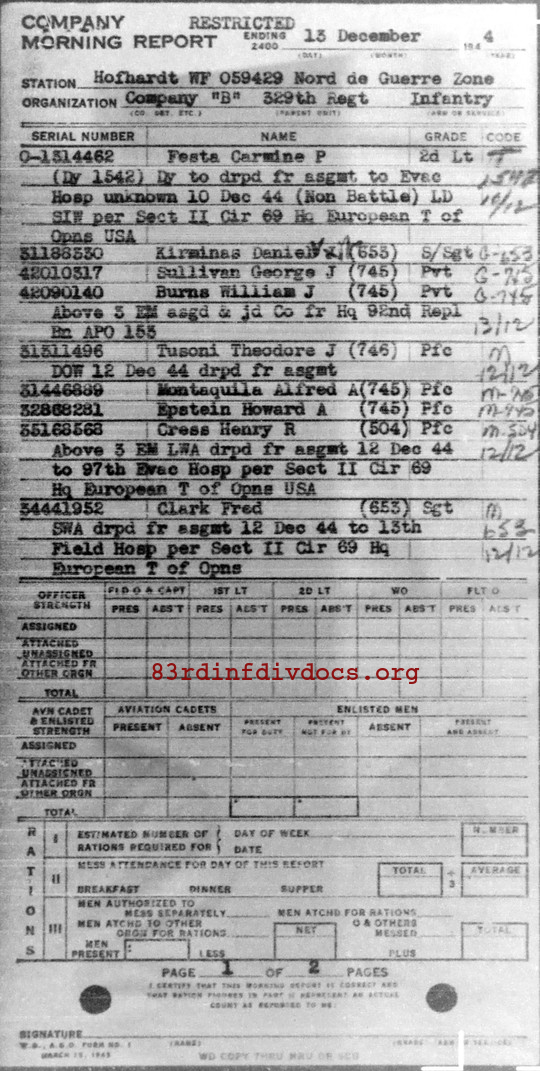 COMPANY RESTRICTED
MORNING REPORT ENDING 2400 13 December 194 4
(DAY) (MONTH) (YEAR)
STATION Hofhardt WF 059429 Nord de Guerre Zone
ORGANIZATION Company "B" 329th Regt Infantry
(CO. DET. ETC.) (PARENT UNIT) (ARM OR SERVICE)
SERIAL NUMBER NAME GRADE CODE
O-1314462 Festa Carmine P 2d Lt
(Dy 1542) Dy to drpd fr asgmt to Evac 1542
Hosp unknown 10 Dec 44 (Non Battle) LD 10/12
SIW per Sect II Cir 69 Hq European T of
Opns USA
31188530 Kirminas Daniel (653) S/Sgt G-653
42010317 Sullivan George J (745) Pvt G-745
42090140 Burns William J (745) Pvt G-745
Above 3 EM asgd & jd Co fr Hq 92nd Repl
Bn APO 153 13/12
31311496 Tusoni Theodore J (746) Pfc M
DOW 12 Dec 44 drpd fr asgmt 12/12
31446889 Montaquila Alfred A(745) Pfc M-745
32868281 Epstein Howard A (745) Pfc M-745
35168568 Cress Henry R (504) Pfc M-504
Above 3 EM LWA drpd fr asgmt 12 Dec 44 12/12
to 97th Evac Hosp per Sect II Cir 69
Hq European T of Opns USA
34441952 Clark Fred (653) Sgt M
SWA drpd fr asgmt 12 Dec 44 to 13th 653
Field Hosp per Sect II Cir 69 Hq 12/12
European T of Opns
OFFICER STRENGTH FLD O & CAPT 1ST LT 2D LT WO FLT O
PRES ABS'T PRES ABS'T PRES ABS'T PRES ABS'T PRES ABS'T
ASSIGNED
ATTACHED UNASSIGNED
ATTACHED FR OTHER ORGN
83rdinfdivdocs.org
TOTAL
AVN CADET & ENLISTED STRENGTH AVIATION CADETS ENLISTED MEN
PRESENT ABSENT PRESENT FOR DUTY PRESENT NOT FOR DY ABSENT PRESENT AND ABSENT
ASSIGNED
ATTACHED UNASSIGNED
ATTACHED FR OTHER ORGN
TOTAL
RATIONS
I ESTIMATED NUMBER OF RATIONS REQUIRED FOR { DAY OF WEEK DATE NUMBER
II MESS ATTENDANCE FOR DAY OF THIS REPORT TOTAL ÷ 3 AVERAGE
BREAKFAST DINNER SUPPER
III MEN AUTHORIZED TO MESS SEPARATELY MEN ATCHD FOR RATIONS
MEN ATCHD TO OTHER ORGN FOR RATIONS NET O & OTHERS MESSED TOTAL
MEN PRESENT LESS PLUS
PAGE 1 OF 2 PAGES
I CERTIFY THAT THIS MORNING REPORT IS CORRECT AND
THAT RATION FIGURES IN PART II REPRESENT AN ACTUAL
COUNT AS REPORTED TO ME.
SIGNATURE
W.D., A.G.O. FORM NO. 1 (NAME) (GRADE) (ARM OR SERVICE)
MARCH 15, 1943 WD COPY THRU MRU OR SCU